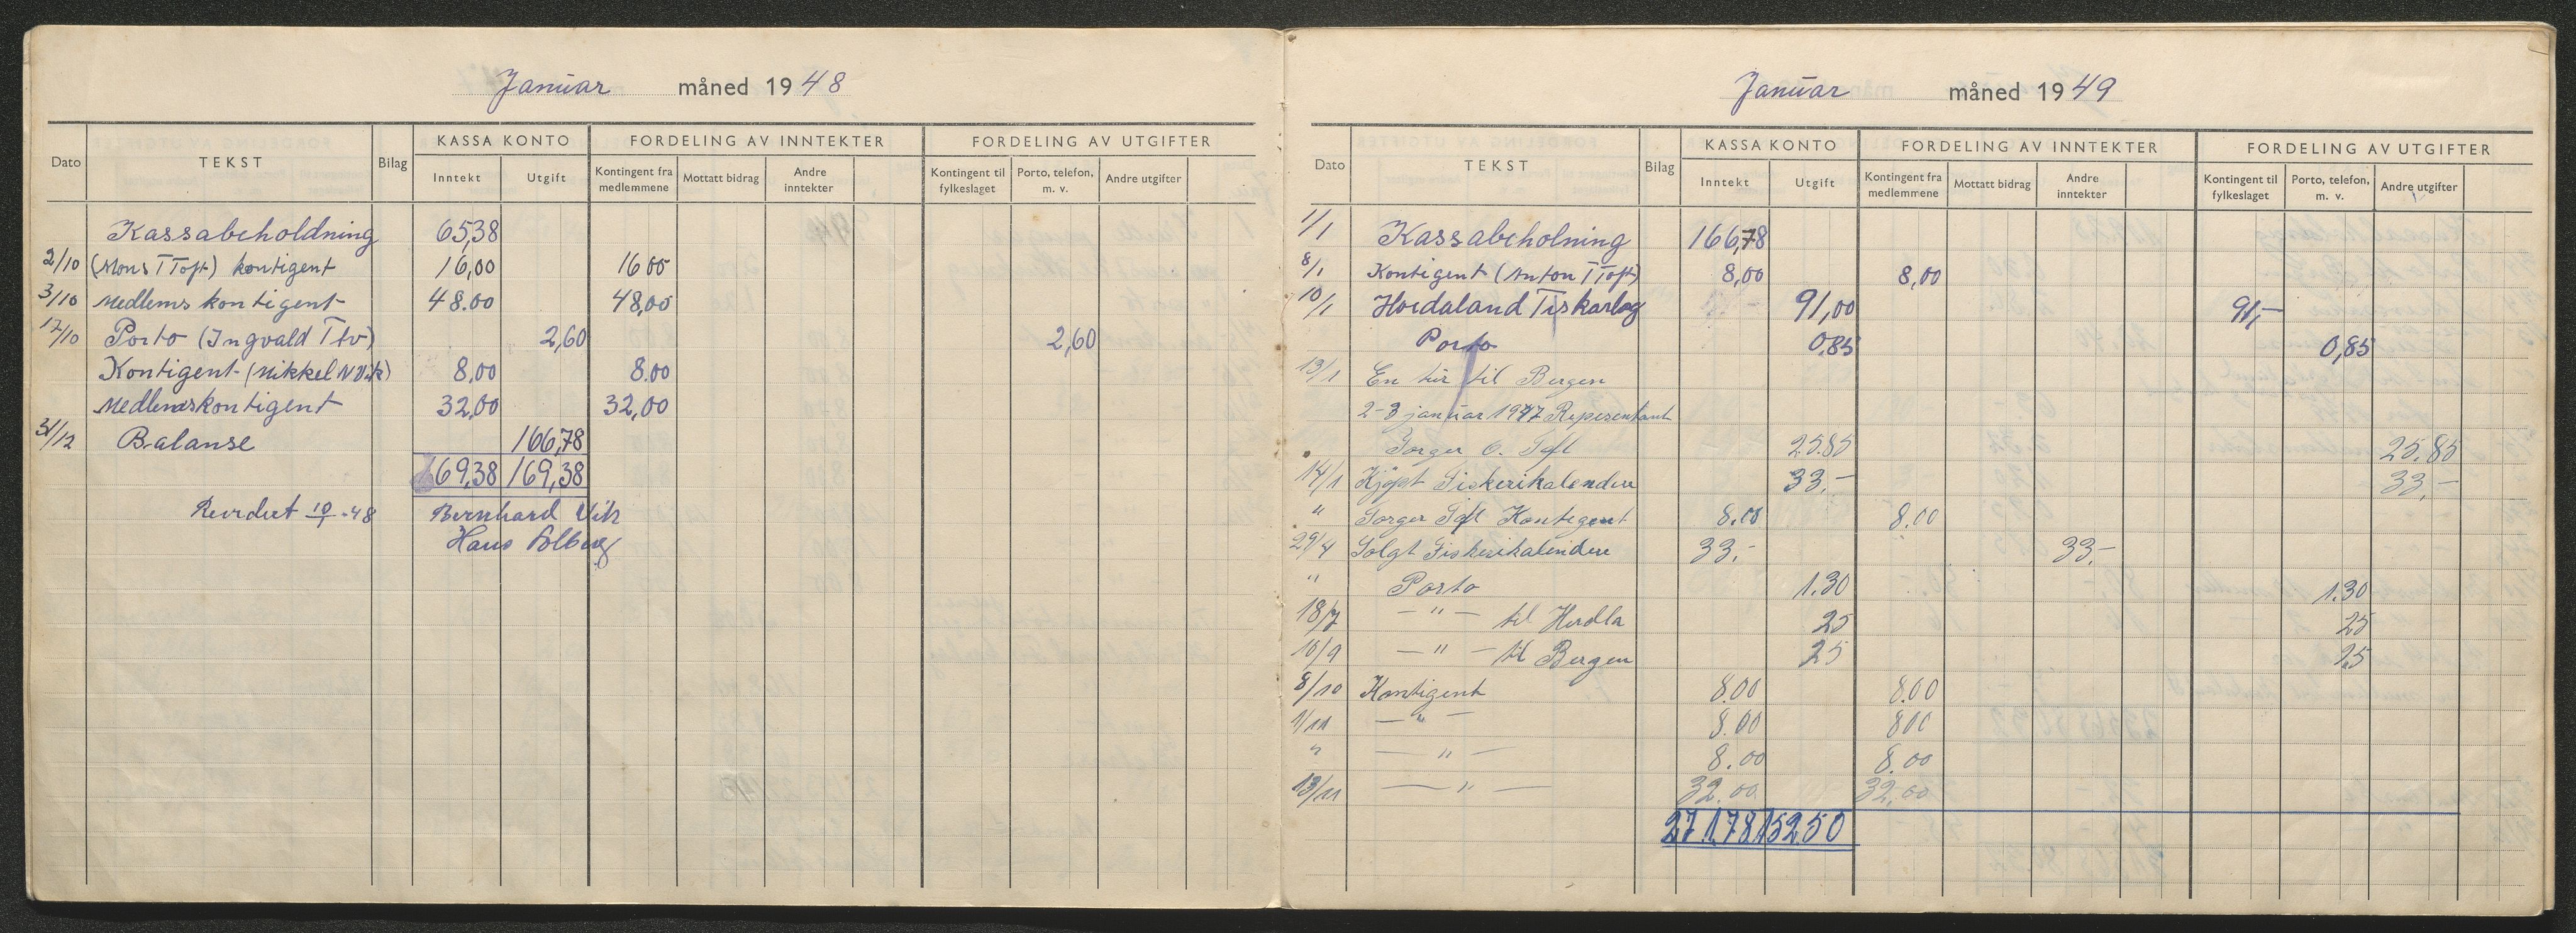 Januar måned 1948
KASSA KONTO FORDELING AV INNTEKTER FORDELING AV UTGIFTER
Dato TEKST Bilag Inntekt Utgift Kontingent fra medlemmene Mottatt bidrag Andre inntekter Kontingent til fylkeslaget Porto, telefon, m. v. Andre utgifter
Kassabeholdning 65,38
2/10 (Mons T Toft) kontigent 16,00 16 00
3/10 Medlems kontigent 48.00 48,00
17/10 Porto (Ingvald T 2,60 2,60
Kontigent (Mikkel N Vik) 8,00 8.00
Medlemskontigent 32,00 32,00
31/12 Balanse 166,78
169,38 169,38
10/1 -48 Bernhard Vik
Hans Solberg
Januar måned 1949
KASSA KONTO FORDELING AV INNTEKTER FORDELING AV UTGIFTER
Dato TEKST Bilag Inntekt Utgift Kontingent fra medlemmene Mottatt bidrag Andre inntekter Kontingent til fylkeslaget Porto, telefon, m. v. Andre utgifter
1/1 Kassabeholning 166,78
8/1 Kontigent (Anton T Toft) 8,00 8,00
10/1 Hordaland Fiskarlag 91,00 91,-
Porto 0,85 0,85
13/1 En tür til Bergen
2-3 januar 1947 Representant
Torger O. Toft 25.85 25.85
14/1 Kjøpt Fiskerikalendere 33.- 33.-
" Torger Toft Kontigent 8.00 8.00
29/4 Solgt Fiskerikalendere 33.- 33.-
" Porto 1.30 1.30
18/7 -"- til Herdla 25 25
10/9 -"- til Bergen 25 25
8/10 Kontigent 8.00 8.00
1/11 -"- 8.00 8 00
" -"- 8.00 8.00
13/11 -"- 32.00 32.00
271,78 152.50